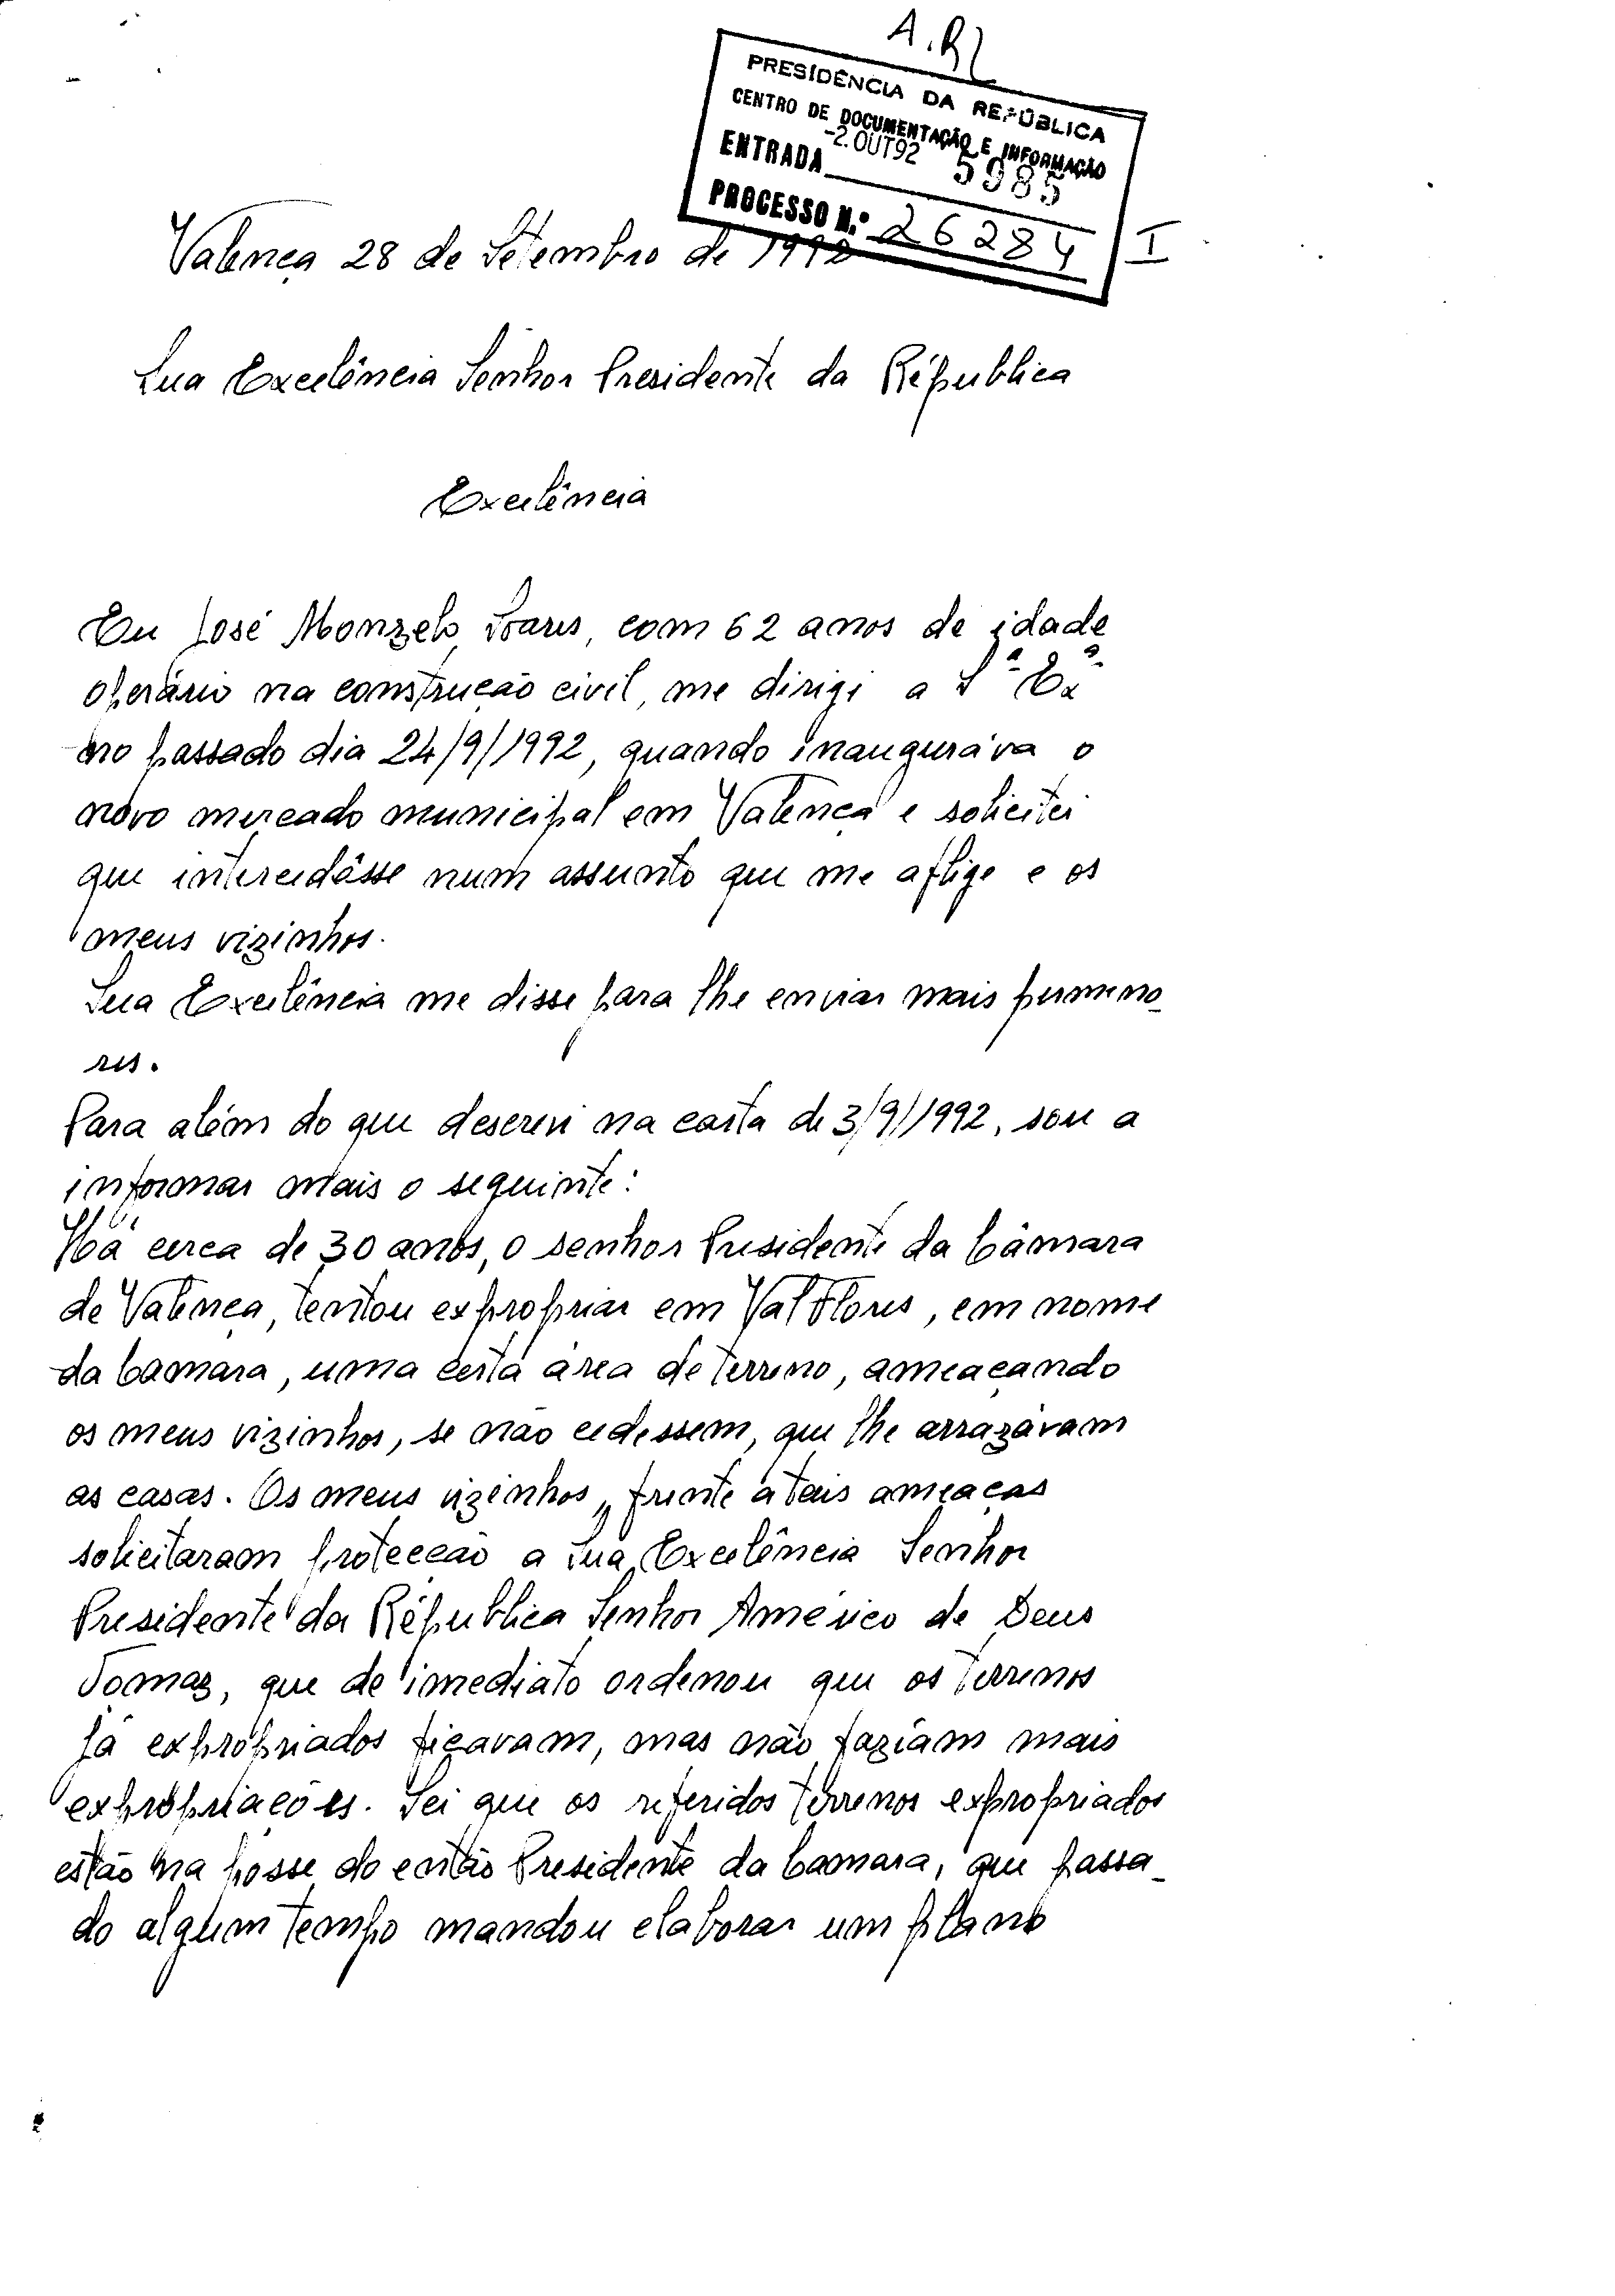 A.R
PRESIDÊNCIA DA REPÚBLICA
CENTRO DE DOCUMENTAÇÃO E INFORMAÇÃO
-2. OUT 92 5985
ENTRADA
PROCESSO N.º 26284 I
Valença 28 de Setembro de 1992
Sua Excelência Senhor Presidente da Répública
Excelência
Eu José Monzelo Soares, com 62 anos de idade
operário na construção civil, me dirigi a Sª Exª
no passado dia 24/9/1992, quando inauguráva o
novo mercado municipal em Valença e solicitei
que intercedâsse num assunto que me aflige e os
meus vizinhos.
Sua Excelência me disse para lhe enviar mais permeno_
res.
Para além do que descrevi na carta de 3/9/1992, sou a
informar mais o seguinte:
Há cerca de 30 anos, o senhor Presidente da Câmara
de Valença, tentou expropriar em Val Flores, em nome
da Camara, uma certa área de terreno, ameaçando
os meus vizinhos, se não cedessem, que lhe arrazávam
as casas. Os meus vizinhos, frente a tais ameaças
solicitaram protecção a Sua Excelência Senhor
Presidente da Répública Senhor Américo de Deus
Tomaz, que de imediato ordenou que os terrenos
já expropriados ficavam, mas não faziam mais
expropriações. Sei que os referidos terrenos expropriados
estão na posse do então Presidente da Camara, que passa_
do algum tempo mandou elaborar um plano